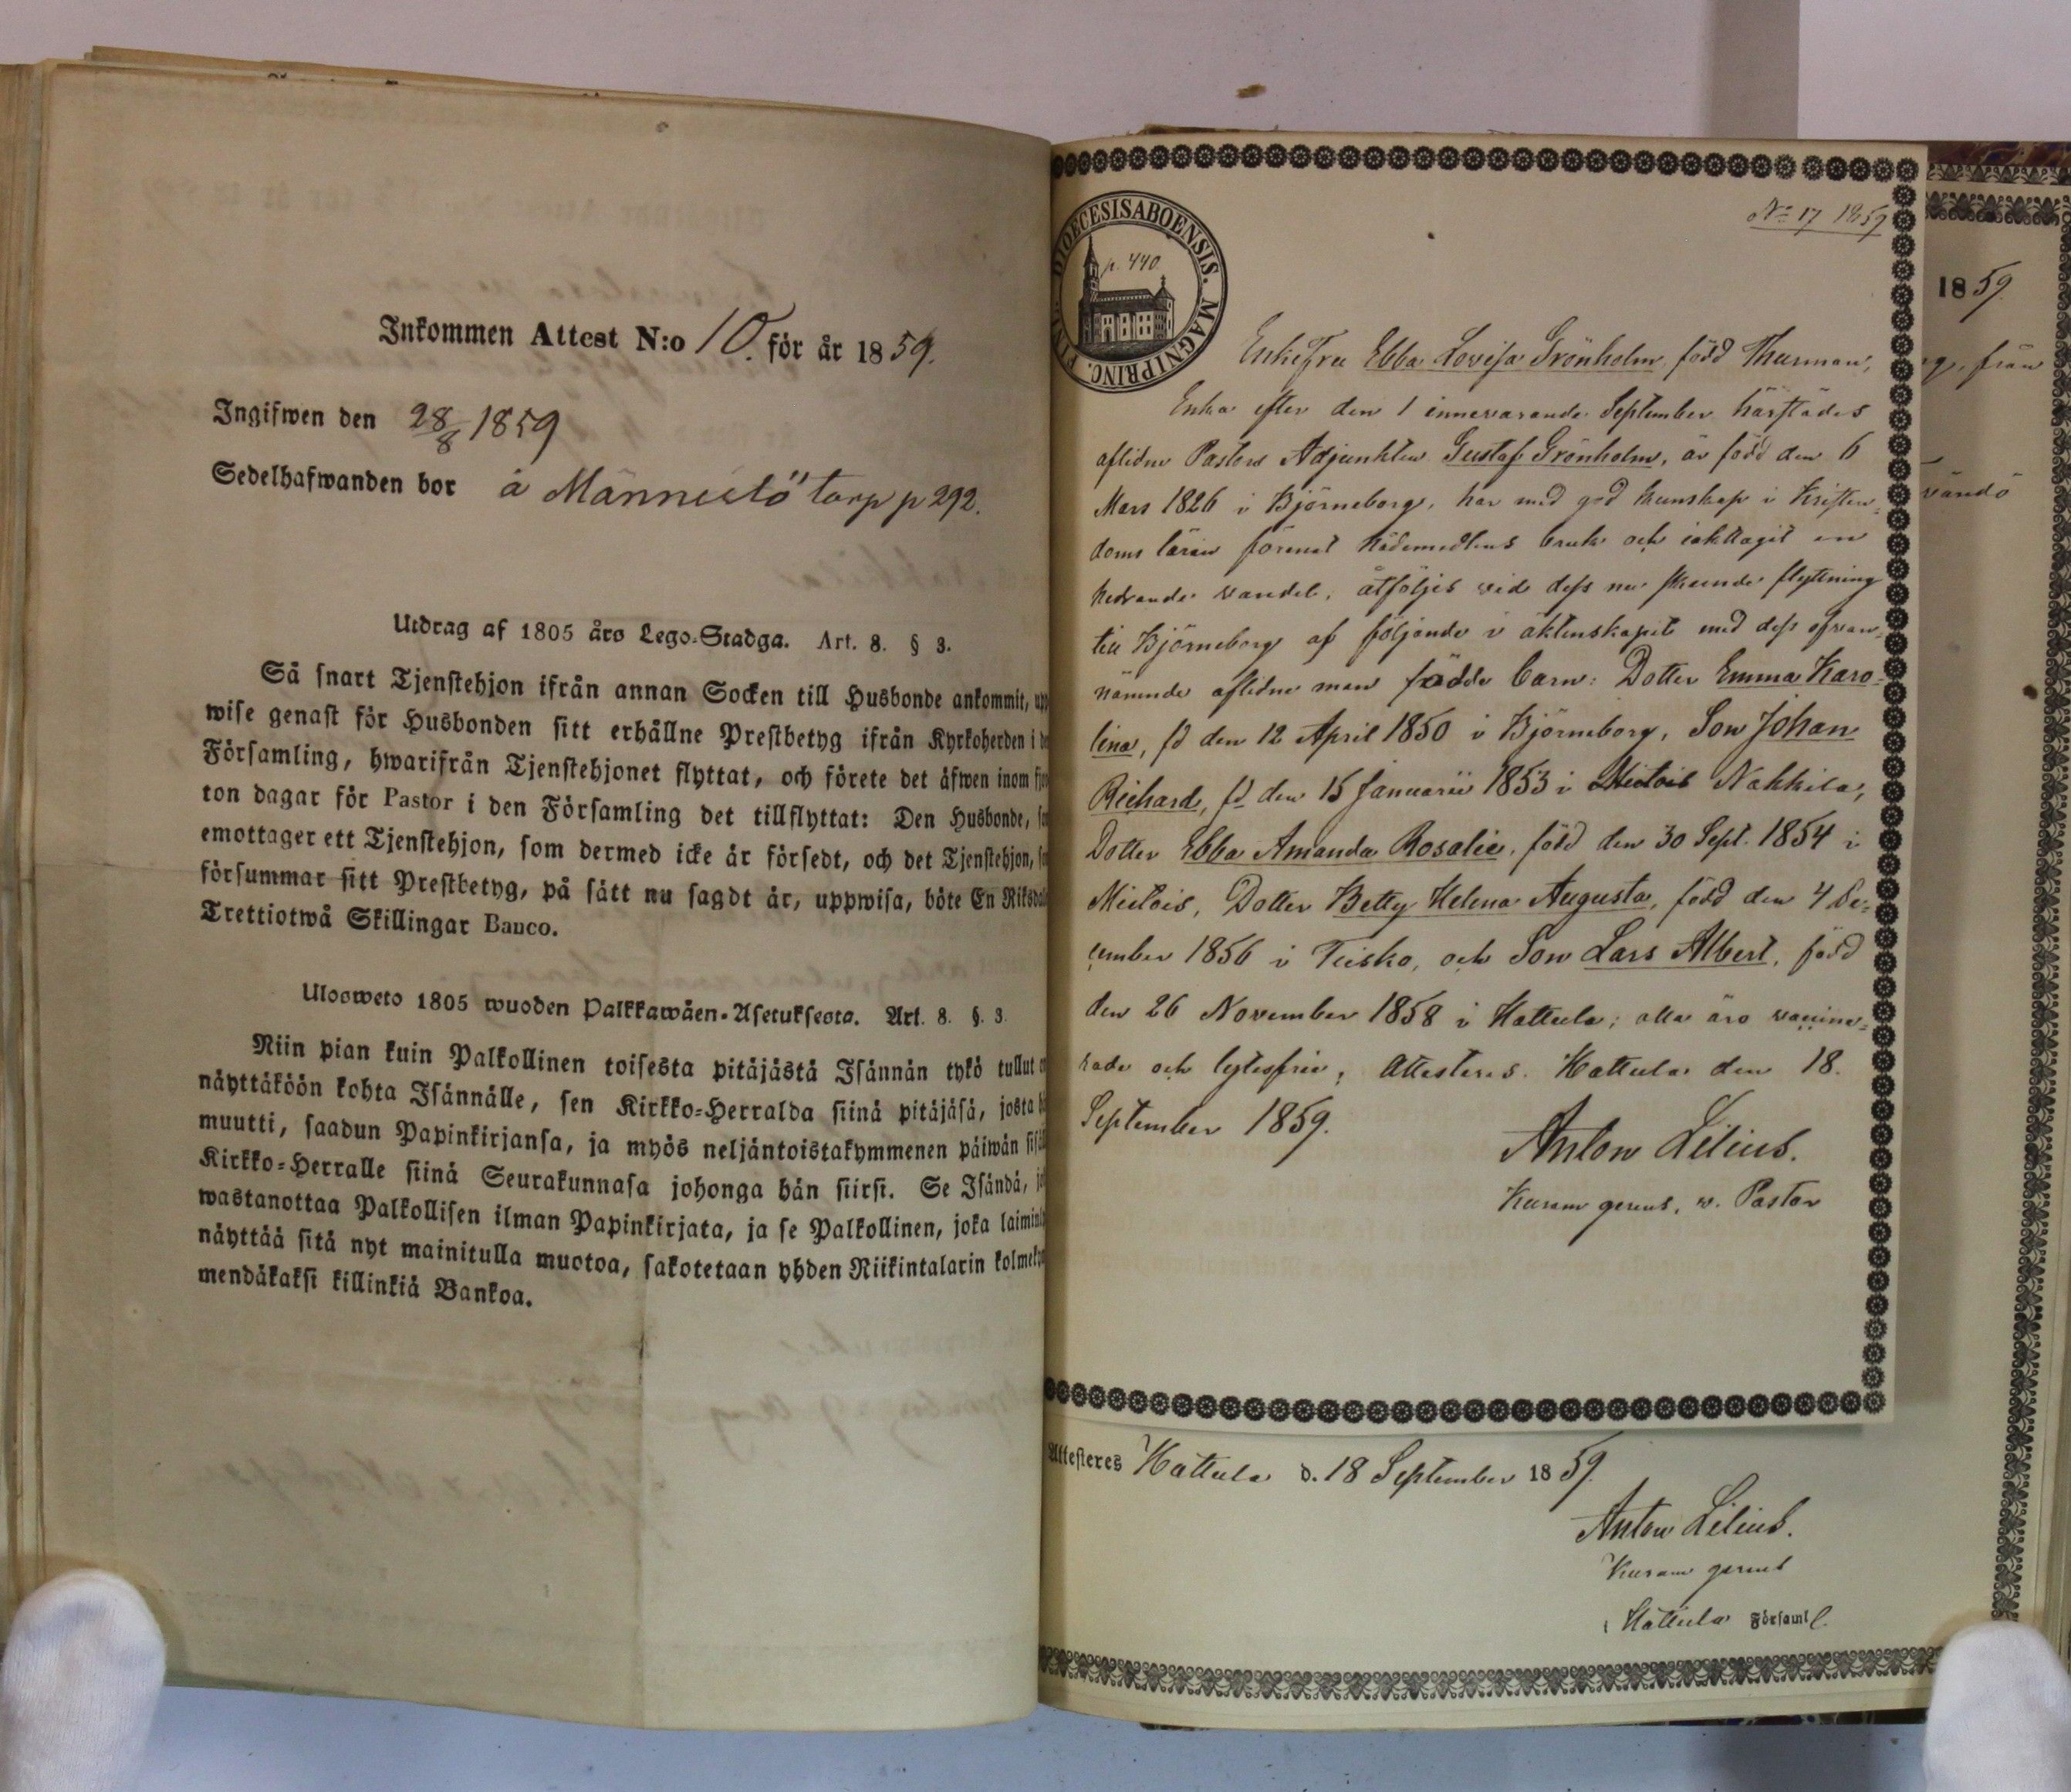 Inkommen Attest N:o 10. för år 1859.
Ingifwen den 28/8 1859
Sedelhafwanden bor å Männistö torp p 292.
Utdrag af 1805 års Lego-Stadga. Art. 8. § 3.
Så snart Tjenstehjon ifrån annan Socken till Husbonde ankommit, upp
wise genast för Husbonden sitt erhållne Prestbetyg ifrån Kyrkoherden i
Församling, hwarifrån Tjenstehjonet flyttat, och förete det äfwen inom
ton dagar för Pastor i den Församling det tillflyttat: Den Husbonde,
emottager ett Tjenstehjon, som dermed icke är försedt, och det Tjenstehjon,
försummar sitt Prestbetyg, på sätt nu sagdt är, uppwisa, böte En Riksdal
Trettiotwå Skillingar Banco.
Ulosweto 1805 wuoden Palkkawäen-Asetuksesta. Art. 8. §. 3.
Niin pian kuin Palkollinen toisesta pitäjästä Isännän tykö tullut
näyttäköön kohta Isännälle, sen Kirkko-Herralda siinä pitäjäsä, josta
muutti, saadun Papinkirjansa, ja myös neljäntoistakymmenen päiwän
Kirkko-Herralle siinä Seurakunnasa johonga hän siirsi. Se Isändä,
wastanottaa Palkollisen ilman Papinkirjata, ja se Palkollinen, joka
näyttää sitä nyt mainitulla muotoa, sakotetaan yhden Riikintalarin
mendäkaksi killinkiä Bankoa.
DIOECESIS ABOENSIS. MAGNI PRINC. FINL.
p. 440
No 17 1859
EnkeFru Ebba Lovisa Grönholm, född Thurman,
Enka efter den 1 innevarande September härstädes
aflidne Pastors Adjunkten Gustaf Grönholm, är född den 6
Mars 1826 i Björneborg, har med god kunskap i Kristen=
doms läran förenat Nådemedlens bruk och iakttagit en
hedrande vandel, åtföljes vid dess nu skeende flyttning
till Björneborg af följande i äktenskapet med dess ofvan=
nämnde aflidne man födde barn: Dotter Emma Karo=
lina, fd den 12 April 1850 i Björneborg, Son Johan
Richard, fd den 15 Januarii 1853 i Nakkila,
Dotter Ebba Amanda Rosalie, född den 30 Sept. 1854 i
Mietois, Dotter Betty Helena Augusta, född den 4 De=
cember 1856 i Teisko, och Son Lars Albert, född
den 26 November 1858 i Hattula; alla äro vaccine=
rade och lytesfrie, Attesteras. Hattula den 18.
September 1859.
Anton Lilius.
Kuram gerens, v. Pastor
Attesteres Hattula d. 18 September 1859.
Anton Lilius.
Kuram gerens
i Hattula Församl.
1859
från